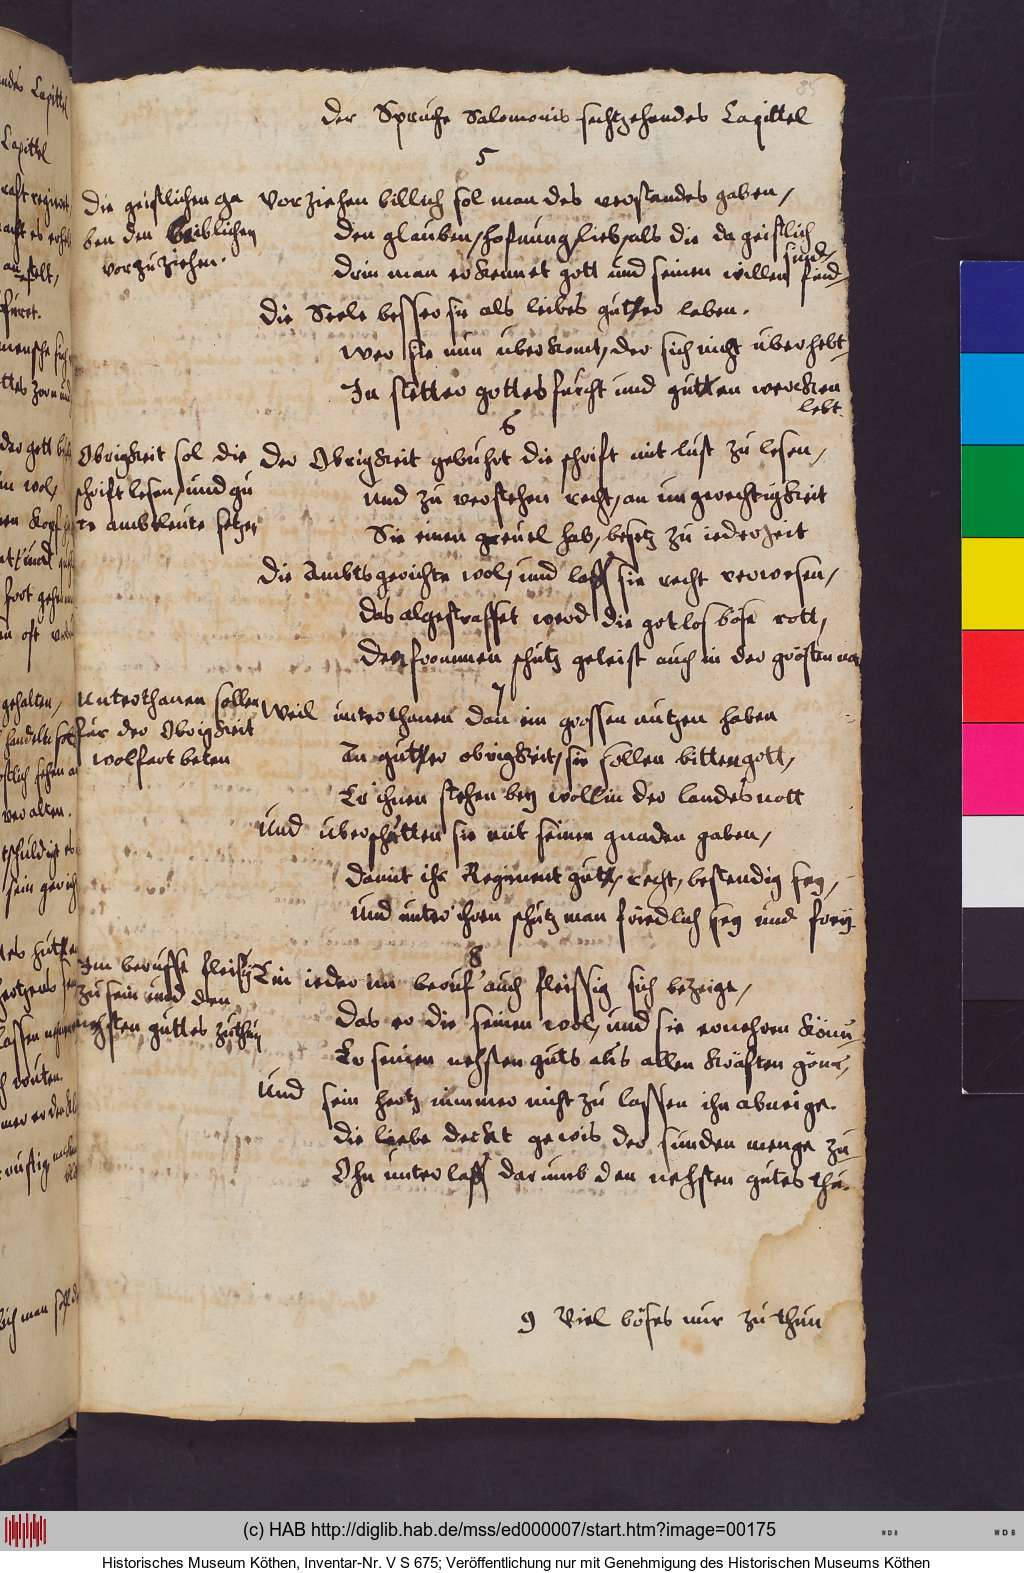 85
der Spruche Salomonis sechtzehendes Capittel
5
die geistlichen ga
ben den leiblichen
vorzuziehen.
Vorziehen billich sol man des verstandes gaben,
den glauben, hofnung, lieb, als die da geistlich
sind,
drin man erkennet gott und seinen willen find,
die Seele besser sie als leibes gutter laben.
wer sie nun uberkomt, der sich nicht uberhebt,
In stetter gottesfurcht und gutten wercken
lebt.
6
Obrigkeit sol die
schrift lesen, und gu
te ambtleute setzen
Der Obrigkeit gebuhrt die schrift mit lust zu lesen,
und zu verstehen recht, an ungerechtigkeit
Sie einen greuel hab, besetz zu jederzeit
die Ambtsgerichte wol, und lass sie recht verwesen,
das abgestraffet werd die gotlos böse rott,
den frommen schutz geleist auch in der grösten not
7
Unterthanen sollen
für der Obrigkeit
wolfart beten
Weil unterthanen dan ein grossen nutzen haben
An gutter obrigkeit, sie sollen bitten gott,
Er ihnen stehen bey woll in der landes nott
und uberschütten sie mit seinen gnaden gaben,
damit ihr Regiment gutt, recht, bestendig sey,
und unter ihren schutz man friedlich sey und frey.
8
Im beruffe fleisig
zu sein und den
nechsten guttes zuthun
Ein ieder im beruf auch fleissig sich bezeige,
das er die seinen wol, und sie ernehren könn,
Er seinen nehsten guts aus allen kräften gönn,
und sein hertz nimmer nicht zu lassen ihn abneige.
die liebe deckt gewis der sunden menge zu
Ohn unterlass darumb den nehsten gutes thu.
9 Viel böses nur zu thun
(c) HAB http://diglib.hab.de/mss/ed000007/start.htm?image=00175
Historisches Museum Köthen, Inventar-Nr. V S 675; Veröffentlichung nur mit Genehmigung des Historischen Museums Köthen